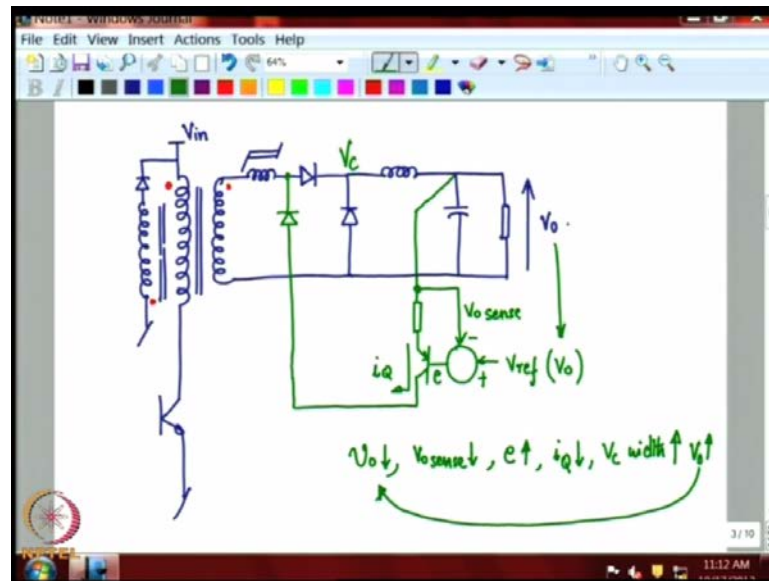 Note1 - Windows Journal
File Edit View Insert Actions Tools Help
64%
B I
Vin
Vc
Vo.
Vo sense
-
iQ
e
+
Vref (Vo)
Vo↓, Vo sense↓, e↑, iQ↓, Vc width↑ Vo↑
3 / 10
NPTEL
11:12 AM